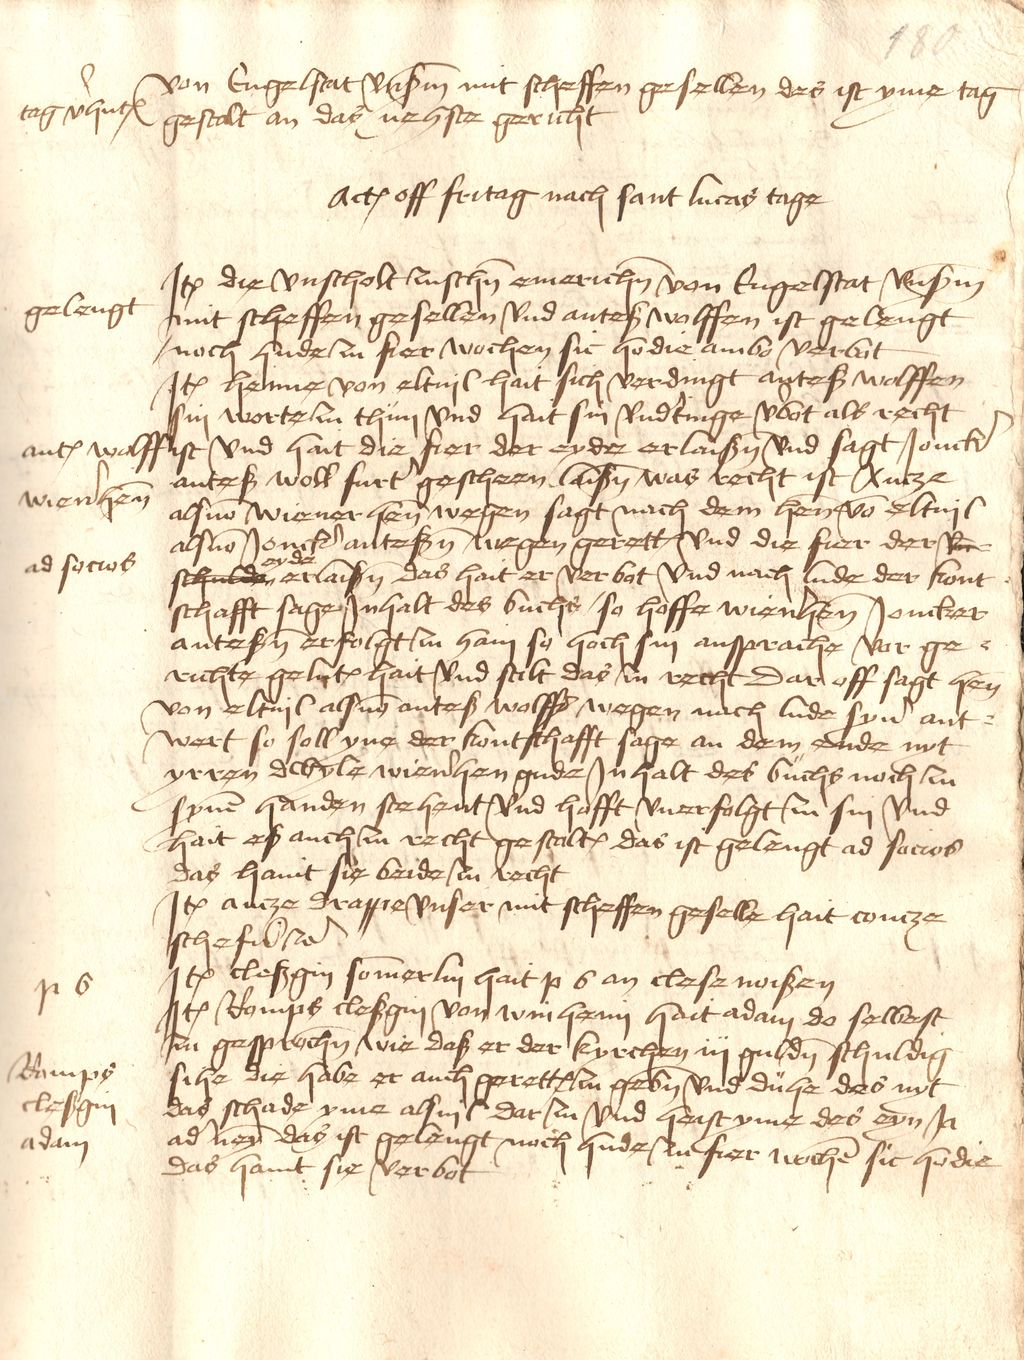 180
von Engelstat unßm mit scheffen gesellen des ist yme tag
tag
gestalt an das nehste gericht
Act% off fritag nach sant lucas tage
It% die unscholt zuschn emerichn von Engelstat unßm
gelengt
mit scheffen gesellen und anteß wolffen ist gelengt
noch hude zu fier wochen sic hodie ambo verbot
It% henne von eltuil hait sich verdingt anteß wolffen
sin worte zu thun und hait sin underdinge vbot als recht
ant% wolff
ist und hait die fier der eyde erlaißn und sagt Joncker
wienerhen
anteß woll furt gescheen laißn was recht ist
alsuo wiener hen wegen sagt nach dem hen vo eltuil
ad socios
alsuo Joncker anteßn wegen gerett und die fier der
schulde eyde erlaißn das hait er verbot und nach lude der kont
schafft sage Inhalt des buchs so hoffe wienerhen Joncker
anteßn erfolgt zu han so hoch sin ansprache vor ge
richte gelut% hait und stilt das zu recht Dar off sagt hen
von eltuil alsuo anteß wolffs wegen nach lude syner ant
wert so soll yne der kontschafft sage an dem ende nyt
yrren dwyle wienerhen gude Inhalt des buchs noch in
synen handen stehent und hofft unerfolgt zu sin und
hait eß auch zu recht gestalt% das ist gelengt ad socios
das hant sie beide zu recht
It% ancze drappe unser mit scheffen geselle hait concze
schefer
It% cleßgin somerlin hait p 6 an clese noißen
p 6
It% Romps cleßgin von winheim hait adam do selbest
zu gesprochn wie daß er der kyrchen iij guldn schuldig
Romps
sihe die habe er auch gerett% zu gebn und duhe des nyt
cleßgin
das schade yme alsuil dar zu und heist yme des eyn Ja
adam
ader neyn das ist gelengt noch hude zu fier wochen sic hodie
das hant sie verbot